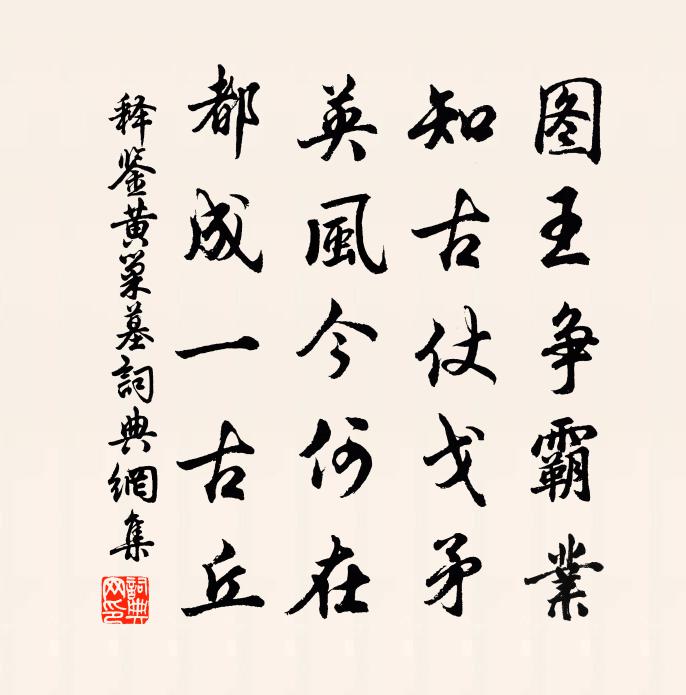 图王争霸業
知古仗戈矛
英風今何在
都成一古丘
释鉴黄巢墓詞典網集
詞典網印